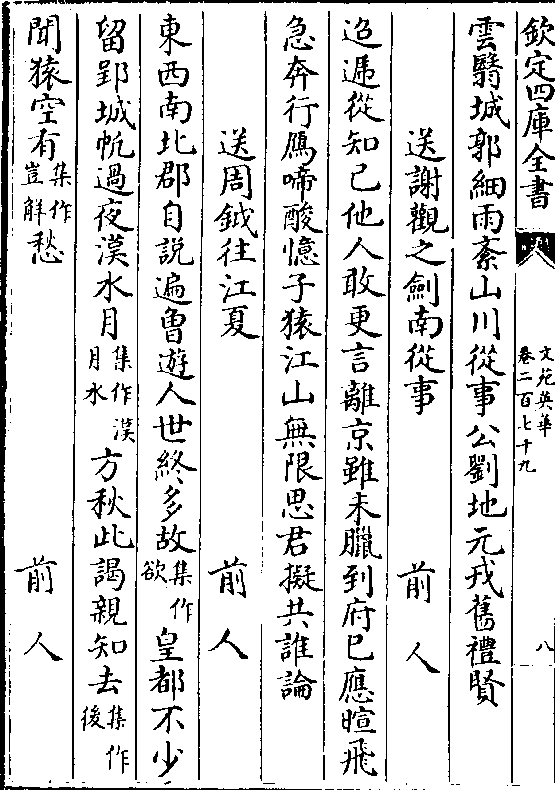 欽定四庫全書
文苑英華
卷二百七十九
八
雲翳城郭細雨紊山川從事公劉地元戎舊禮賢
送謝觀之劍南從事 前人
迢遞從知已他人敢更言離京雖未臘到府已應暄飛
急奔行鴈啼酸憶子猿江山無限思君擬共誰論
送周鉞往江夏 前人
東西南北郡自説遍曾遊人世終多故集作欲皇都不少
留郢城帆過夜漢水月集作漢月水方秋此謁親知去集作後
聞猿空有集作豈解愁 前人